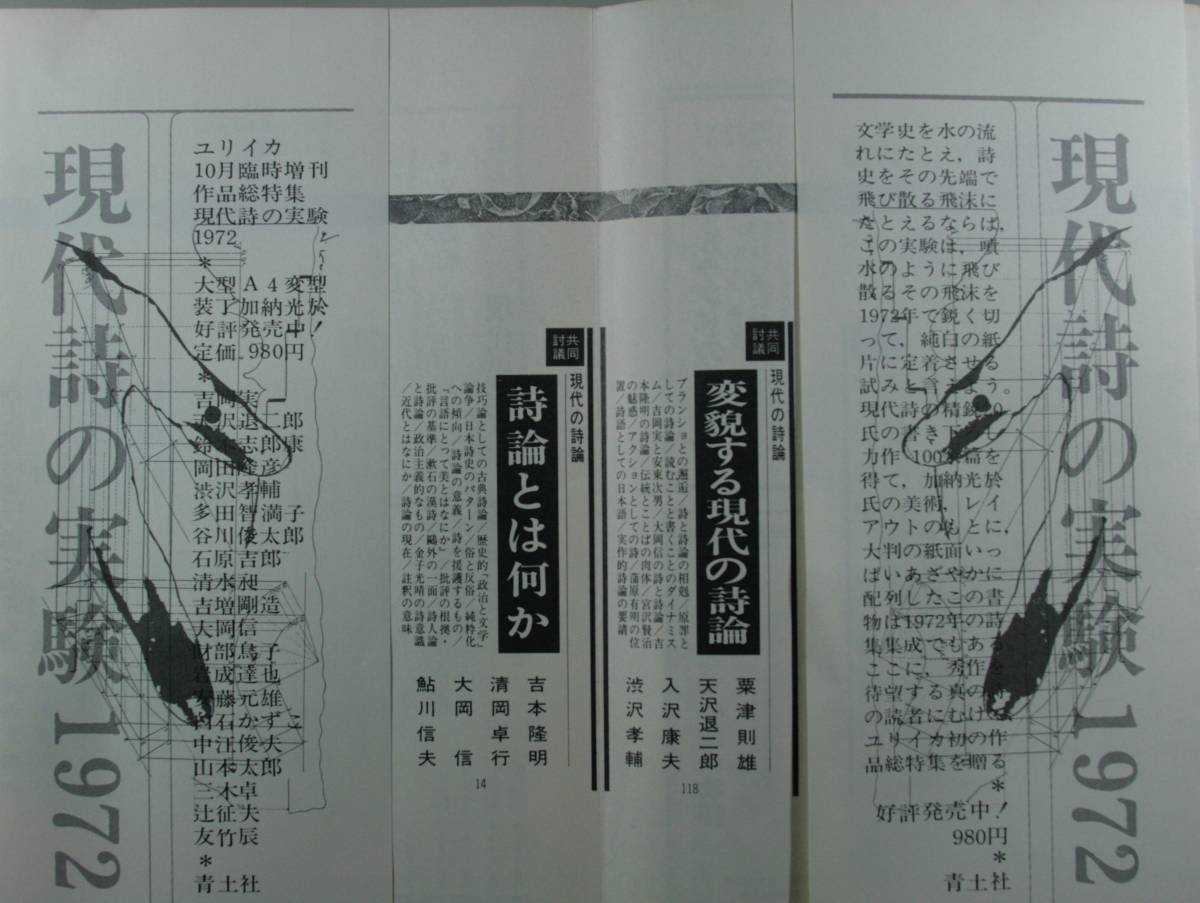 現代詩の実験 1972
文学史を水の流
れにたとえ，詩
史をその先端で
飛び散る飛沫に
たとえるならば，
この実験は，噴
水のように飛び
散るその飛沫を
1972年で鋭く切
って，純白の紙
片に定着させる
試みと言えよう。
現代詩の精鋭
氏の書き下ろし
力作 100余篇を
得て，加納光於
氏の美術，レイ
アウトのもとに，
大判の紙面いっ
ぱいあざやかに
配列したこの書
物は1972年の詩
集集成でもある
ここに，秀作を
待望する真の詩
の読者にむけて
ユリイカ初の作
品総特集を贈る
*
好評発売中！
980円
*
青土社
共同
討議
現代の詩論
変貌する現代の詩論
ブランショとの邂逅／詩と詩論の相剋／原罪と
しての詩論／読むことと書くことのダイナミス
ム／吉岡実と安東次男／大岡信の詩と詩論／吉
本隆明の詩論／伝統とことばの肉体／宮沢賢治
の魅惑／アクションとしての詩／蒲原有明の位
置／詩語としての日本語／実作的詩論の要請
粟津則雄
天沢退二郎
入沢康夫
渋沢孝輔
118
共同
討議
現代の詩論
詩論とは何か
技巧論としての古典詩論／歴史的「政治と文学」
論争／日本詩史のパターン／俗と反俗／純粋化
への傾向／詩論の意義／詩を援護するもの／
「言語にとって美とはなにか」／批評の根拠・
批評の基準／漱石の漢詩／鷗外の一面／詩人論
と詩論／政治主義的なもの／金子光晴の詩意識
／近代とはなにか／詩論の現在／註釈の意味
吉本隆明
清岡卓行
大岡信
鮎川信夫
14
ユリイカ
10月臨時増刊
作品総特集
現代詩の実験
1972
*
大型A4変型
装丁加納光於
好評発売中！
定価 980円
*
吉岡実
天沢退二郎
鈴木志郎康
岡田隆彦
渋沢孝輔
多田智満子
谷川俊太郎
石原吉郎
清水昶
吉増剛造
大岡信
財部鳥子
岩成達也
安藤元雄
白石かずこ
中江俊夫
山本太郎
三木卓
辻征夫
友竹辰
*
青土社
現代詩の実験 1972